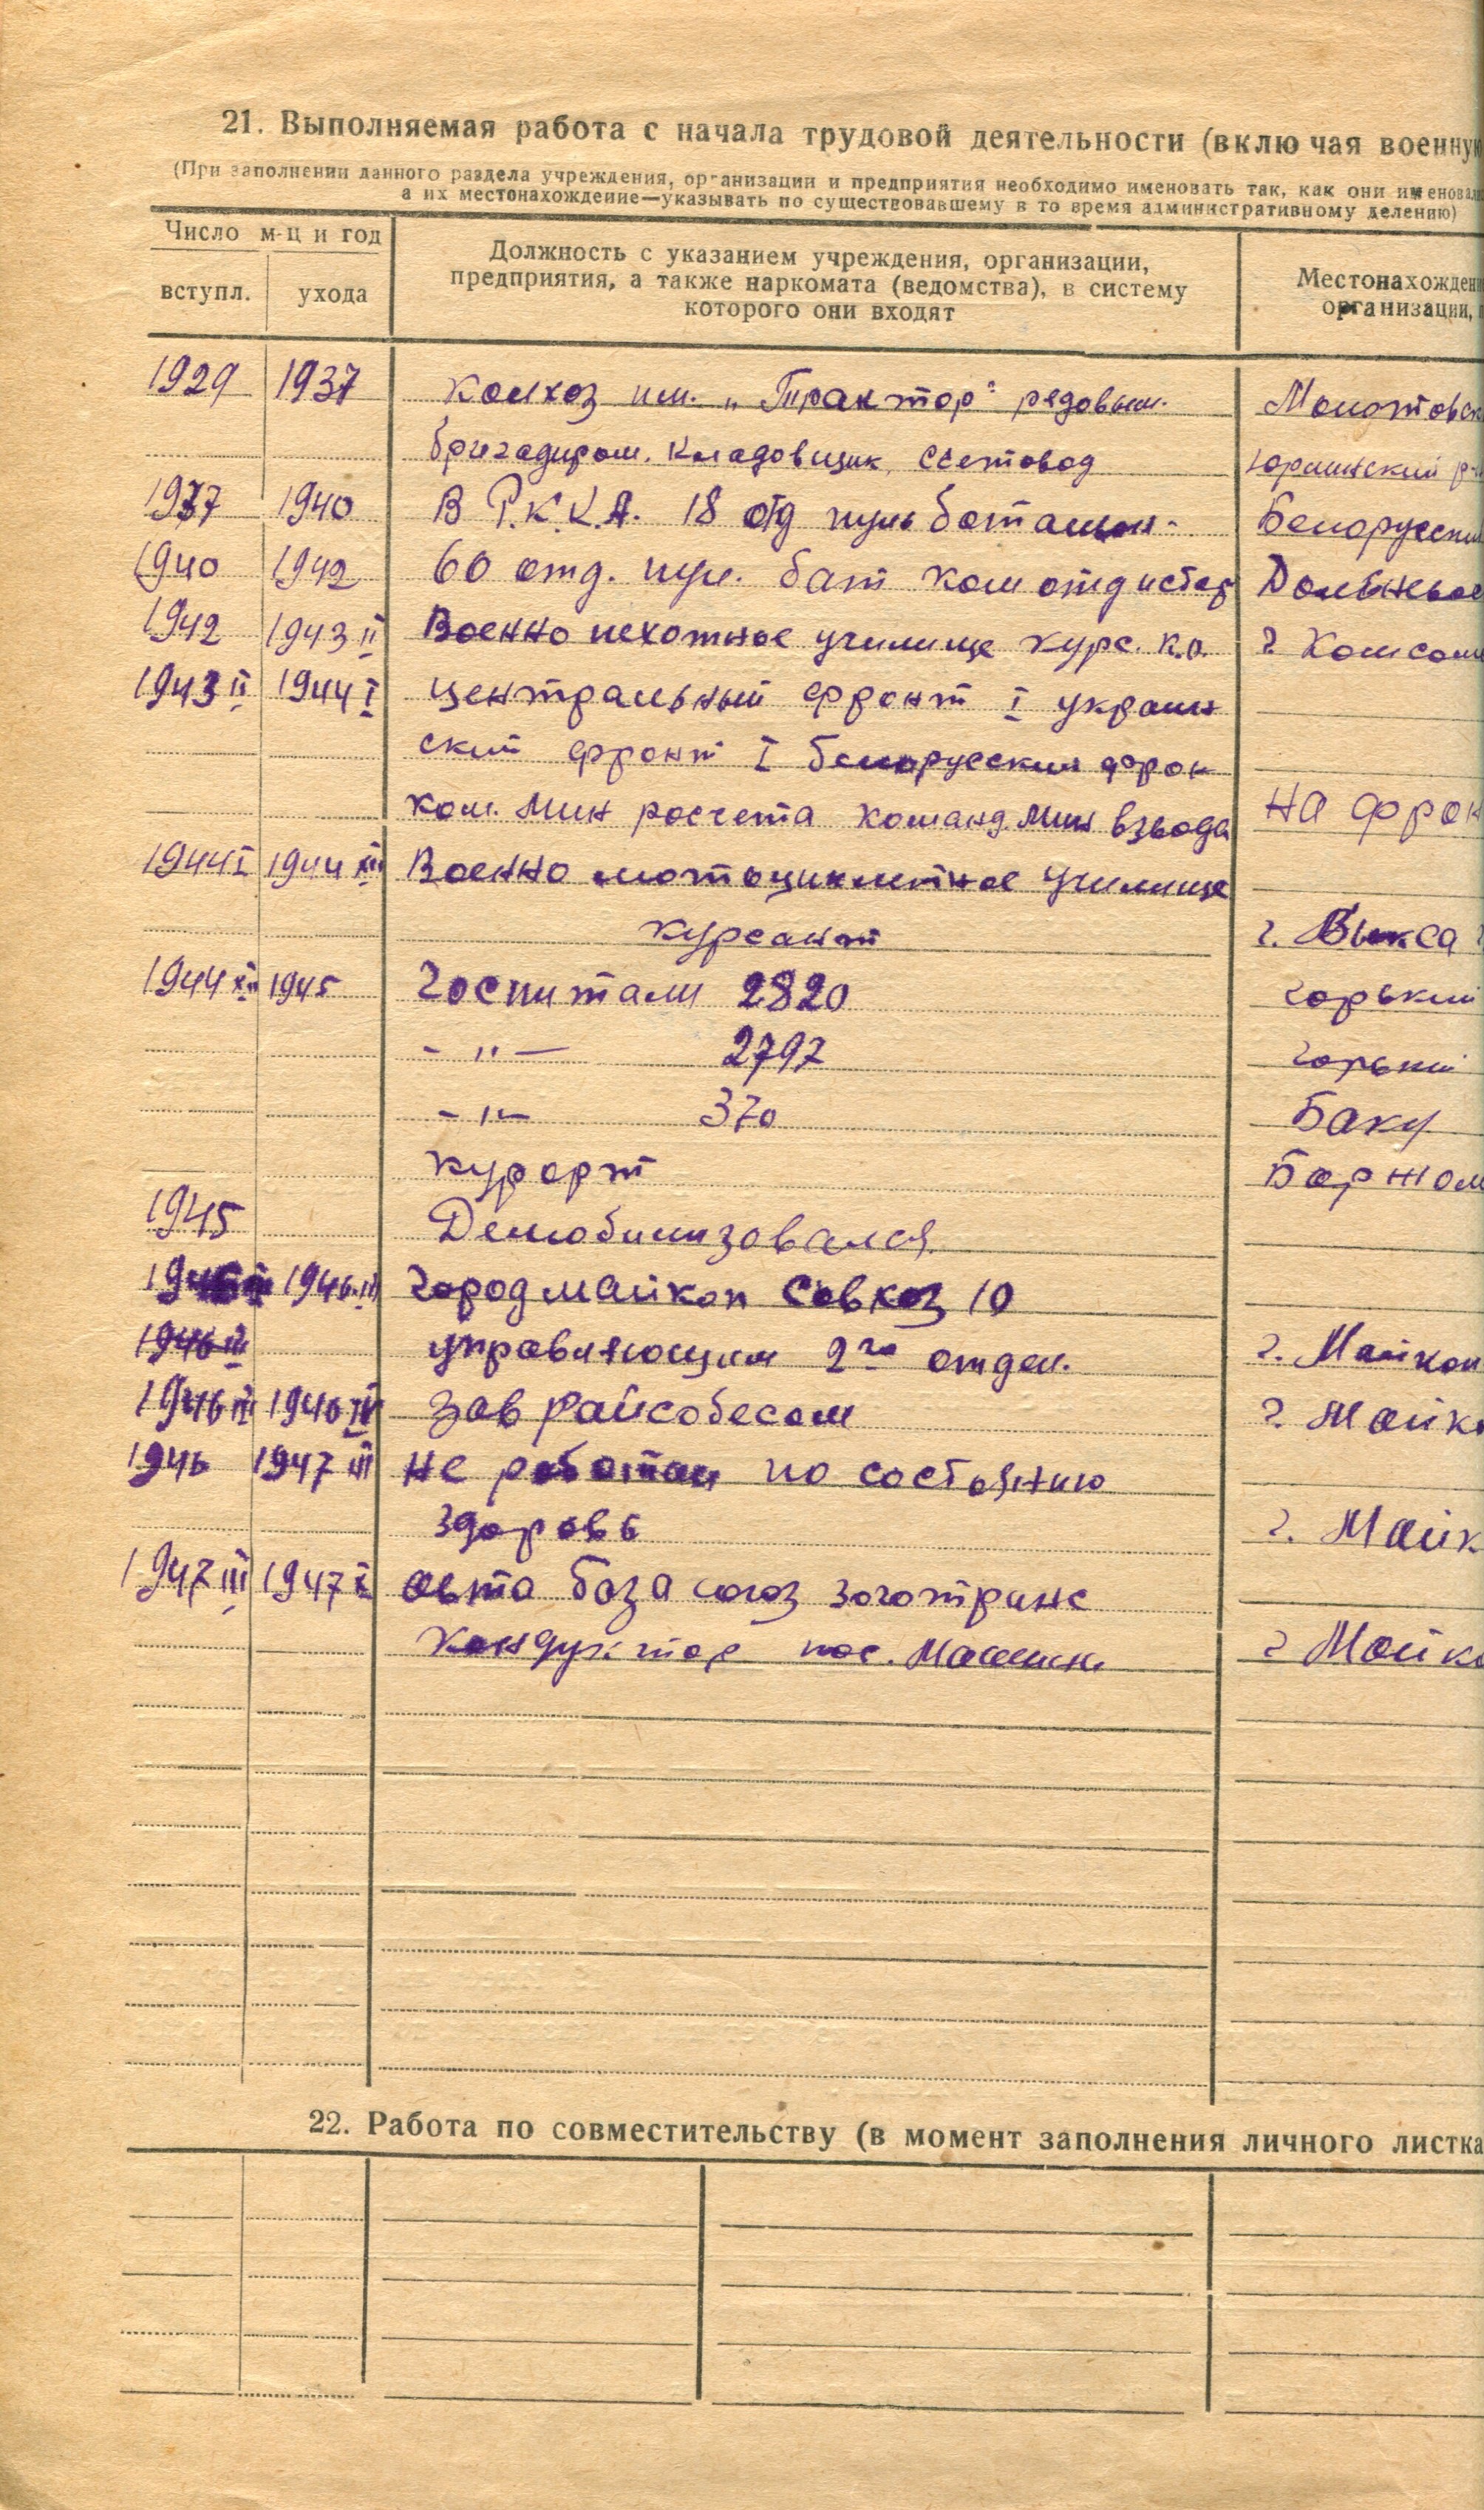 21. Выполняемая работа с начала трудовой деятельности (включая военную
(При заполнении данного раздела учреждения, организации и предприятия необходимо именовать так, как они именовал
а их местонахождение—указывать по существовавшему в то время административному делению)
Число м-ц и год
вступл. ухода
Должность с указанием учреждения, организации,
предприятия, а также наркомата (ведомства), в систему
которого они входят
Местонахождени
организации,
1929 1937 Колхоз им. „Трактор" рядовым. Молотовск
бригадиром. Кладовщик, Счетовод юрлинский р-
1937 1940 В Р.К.К.А. 18 отд пуль баталион- Белорусский
1940 1942 60 отд. пул. бат ком отд Дальнево
1942 1943 II Военно пехотное училище курс. г Комсом
1943 II 1944 I Центральный фронт I украин
ский фронт I белорусский фрон
ком. Мин росчета команд. Мин взвода на фрон
1944 I 1944 XII Военно мотоциклетное училище
курсант г. Выкса
1944 XII 1945 Госпитали 2820 горький
- " - 2797 горький
- " - 370 Баку
курорт Боржом
1945 Демобилизовался
1946 III Город майкоп Совхоз 10
1946 III управляющим 2го отдел. г. Майкоп
1946 III 1946 IV Зав райсобесом г. Майко
1946 1947 III не работал по состоянию
здоровь г. Майк
1947 III 1947 авто база союз заготтранс
кондуктор пас. Машины г Майко
22. Работа по совместительству (в момент заполнения личного листка